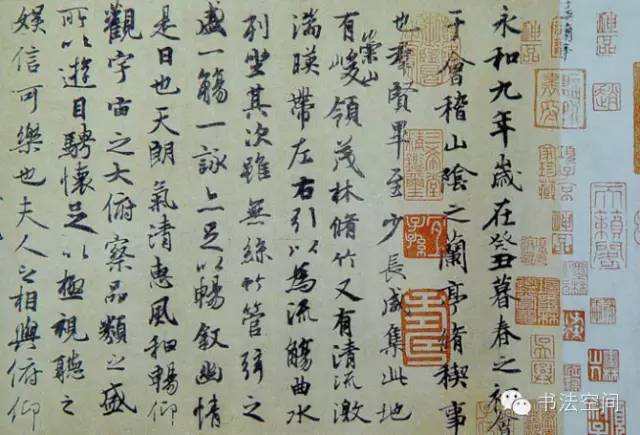 永和九年歲在癸丑暮春之初會
于會稽山陰之蘭亭脩稧事
也群賢畢至少長咸集此地
有崇山峻領茂林脩竹又有清流激
湍暎帶左右引以為流觴曲水
列坐其次雖無絲竹管弦之
盛一觴一詠亦足以暢敘幽情
是日也天朗氣清惠風和暢仰
觀宇宙之大俯察品類之盛
所以遊目騁懷足以極視聽之
娛信可樂也夫人之相與俯仰
天籟閣
书法空间